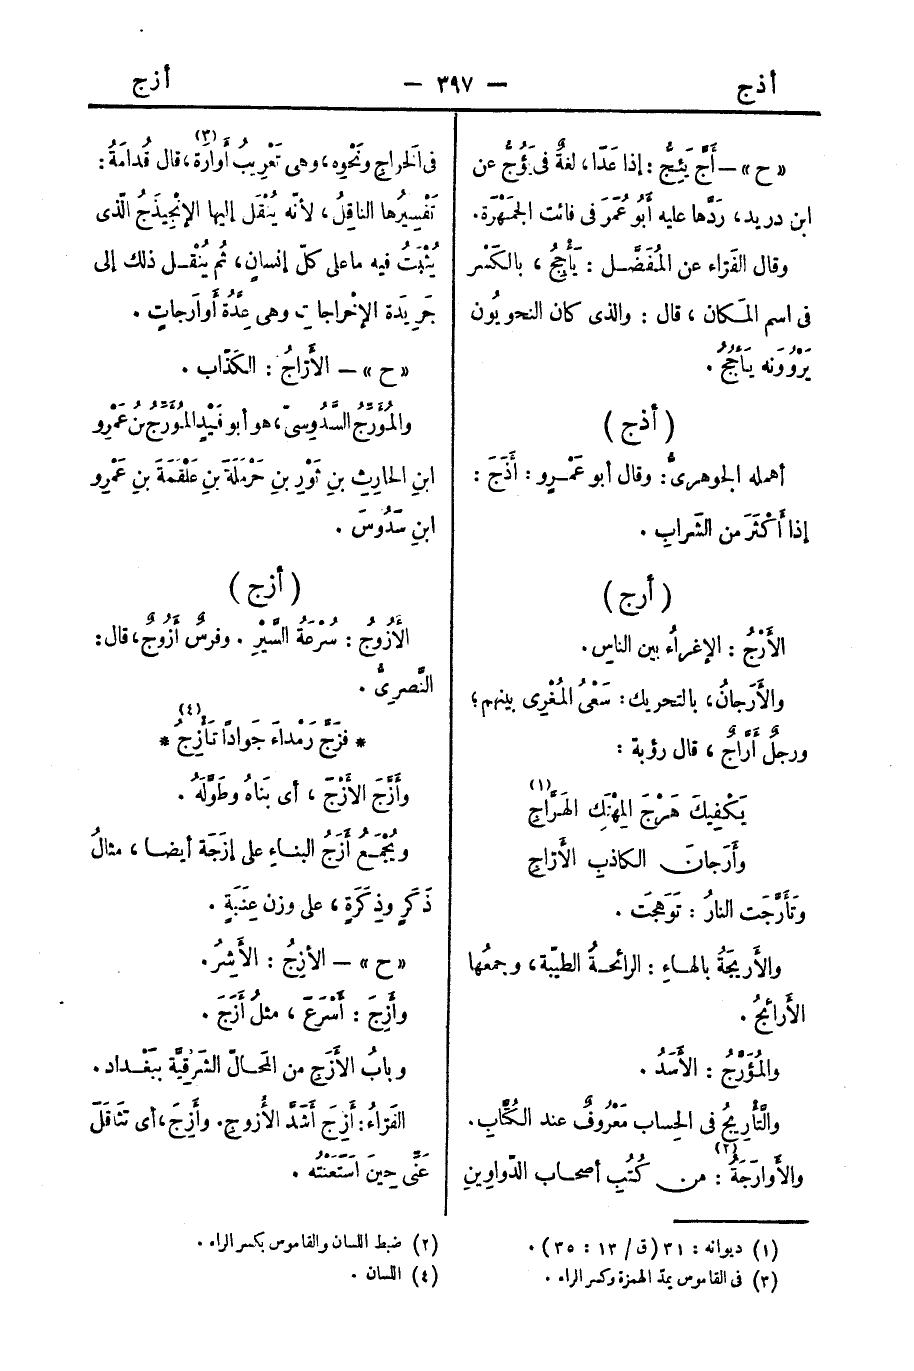 أذج — ٣٩٧ — أزج
«ح» – أَجَّ يَئِجُّ : إذا عَدَا، لغةٌ فى يَؤُجُّ عن
ابن دريد، رَدَّها عليه أَبُو عُمَرَ فى فائت الجَمْهَرَة.
وقال الفَرّاء عن المُفَضَّل : يَأْجِجُ ، بالكَسْرِ
فى اسم المَكان ، قال : والذى كان النحويُون
يَرْوُونه يَأْجَجُ .
( أذج )
أهمله الجوهرىُّ: وقال أبو عَمْرو : أَذَجَ :
إذا أَكْثَرَ من الشَّرابِ .
( أرج )
الأَرْجُ : الإغراءُ بين الناسِ.
والأَرَجانُ، بالتحريك: سَعْىُ المُغْرِى بينهم؛
ورجلٌ أَرَّاجٌ ، قال رؤبة :
يَكْفِيكَ هَرْجَ المِهْتَكِ الهَرَّاجِ (١)
وأَرَجانَ الكاذبِ الأَرّاجِ
وتَأَرَّجَت النارُ : تَوَهَّجَتْ .
والأَرِيجَةُ بالهاءِ : الرائحةُ الطيّبة، وجمعُها
الأَرائجُ .
والمُؤَرَّجُ : الأَسَدُ .
والتَّأْرِيجُ فى الحِساب مَعْرُوفٌ عند الكُتّابِ.
والأَوارَجَةُ (٢) : من كُتُبِ أصحاب الدّواوِينِ
فى الخراجِ ونَحْوِه، وهى تَعْرِيبُ أَوارَه (٣)، قال قُدامَةُ :
تَفْسِيرُها الناقِلُ ، لأنّه يُنْقَل إليها الإنْجِيذَجُ الَّذى
يُثْبَتُ فيه ما على كلّ إنسانٍ، ثُم يُنْقَل ذلك إلى
جَرِيدَة الإخْراجاتِ وهى عِدَّةُ أَوارجاتٍ .
«ح» – الأَرّاجُ : الكَذّاب .
والمُؤَرِّجُ السَّدُوسىّ، هو أبو فَيْدٍ المُؤَرِّجُ بنُ عَمْرِو
ابنِ الحارِثِ بنِ ثَوْرِ بنِ حَرْمَلَةَ بنِ عَلْقَمَةَ بنِ عَمْرِو
ابنِ سَدُوسَ .
( أزج )
الأُزُوجُ : سُرْعَةُ السَّيْرِ . وفرسٌ أَزُوجٌ، قال :
النَّضرىُّ .
* فزَجَّ رَمْداءَ جَوادًا تَأْزِجُ (٤) *
وأَزَّجَ الأَزَجَ ، أى بَناهُ وطَوَّلَهُ .
ويُجْمَعُ أَزَجُ البناءِ على إزَجَة أيضا ، مثالُ
ذَكَرٍ وذِكَرَةٍ ، على وزن عِنَبَةٍ .
«ح» – الأَزِجُ : الأَشِرُ.
وأَزِجَ : أَسْرَعَ ، مثلُ أَزَجَ .
وبابُ الأَزَجِ من المَحالّ الشَّرْقِيَّة ببَغْداد.
الفَرّاءُ: أَزِجَ أَشَدَّ الأُزوجِ. وأَزِجَ، أى تَثاقَلَ
عَنِّى حِينَ اسْتَعَنْتُه .
(١) ديوانه : ٣١ (ق / ١٣ : ٣٥) .
(٢) ضبط اللسان والقاموس بكسر الراء .
(٣) فى القاموس بمدّ الهمزة وكسر الراء .
(٤) اللسان .